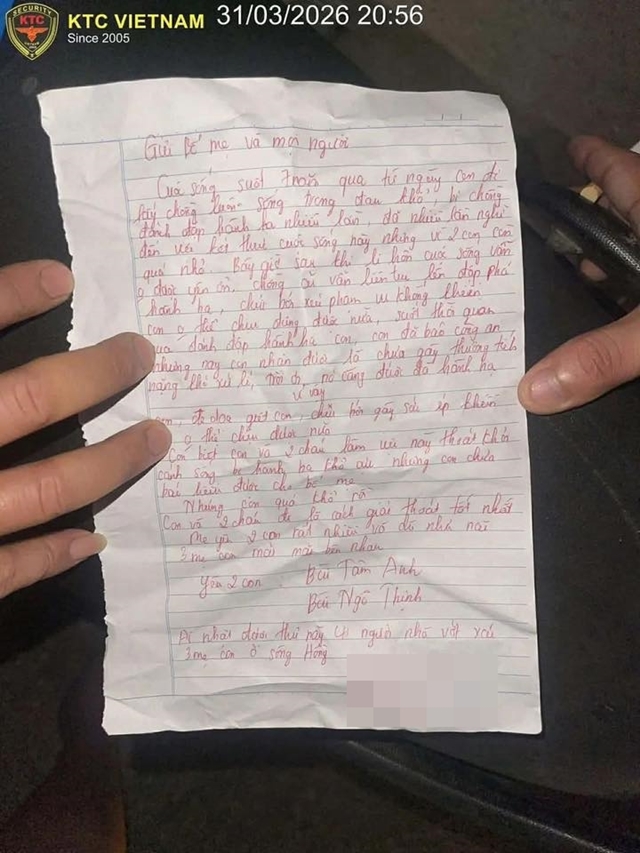 SECURITY
KTC
KTC VIETNAM
Since 2005
31/03/2026 20:56
Gửi Bố mẹ và mọi người
Cuộc sống suốt 7 năm qua từ ngày con đi
lấy chồng luôn sống trong đau khổ, bị chồng
đánh đập hành hạ nhiều lần đã nhiều lần nghĩ
đến việc kết thúc cuộc sống này nhưng vì 2 con còn
quá nhỏ. Bây giờ sau khi li hôn cuộc sống vẫn
o được yên ổn, chồng cũ vẫn liên tục đập phá
hành hạ, chửi bới xúc phạm khiến
con o thể chịu đựng được nữa, suốt thời gian
qua đánh đập hành hạ con, con đã báo công an
nhưng nay con nhận được là chưa gây thương tích
nặng xử lí, nó càng được đà hành hạ
vì vậy
con, đe doạ giết con, chửi bới gây sức ép khiến
o thể chịu được nữa
Con biết con và 2 cháu làm này thoát khỏi
cảnh sống bị hành hạ khổ ải nhưng con chưa
báo hiếu được cho bố mẹ
Nhưng con quá khổ rồi
Con và 2 cháu đi là cách giải thoát tốt nhất
Mẹ yêu 2 con rất nhiều
3 mẹ con mãi mãi bên nhau
Yêu 2 con. Bùi Tâm Anh
Bùi Ngô Thịnh
Ai nhặt được thư này người nhà vớt xác
3 mẹ con ở sông Hồng